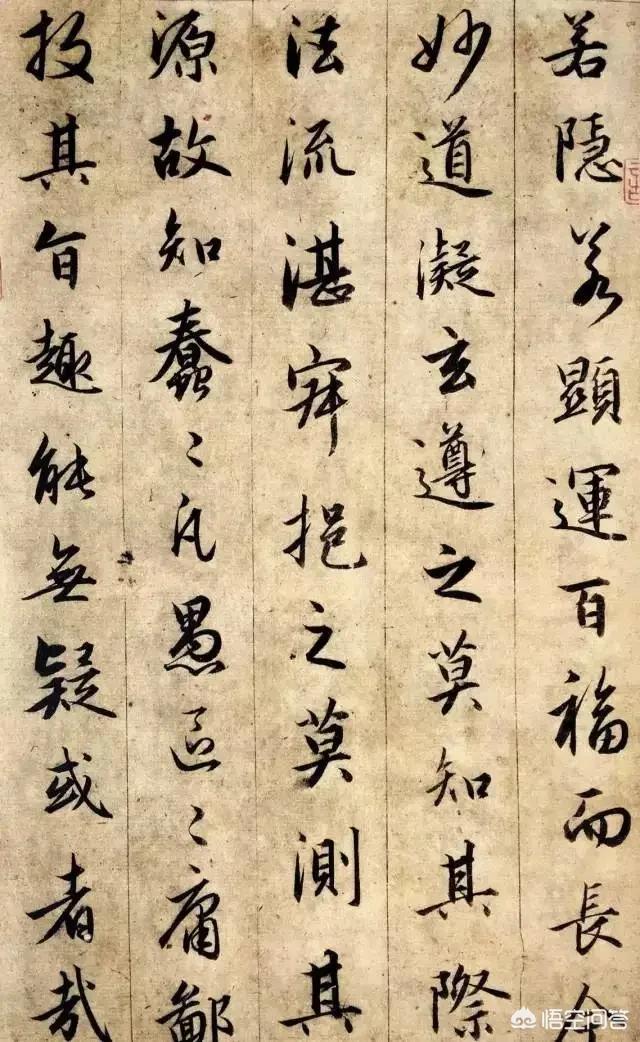 若隱若顯運百福而長今
妙道凝玄遵之莫知其際
法流湛寂挹之莫測其
源故知蠢〻凡愚區〻庸鄙
投其旨趣能無疑或者哉
悟空问答